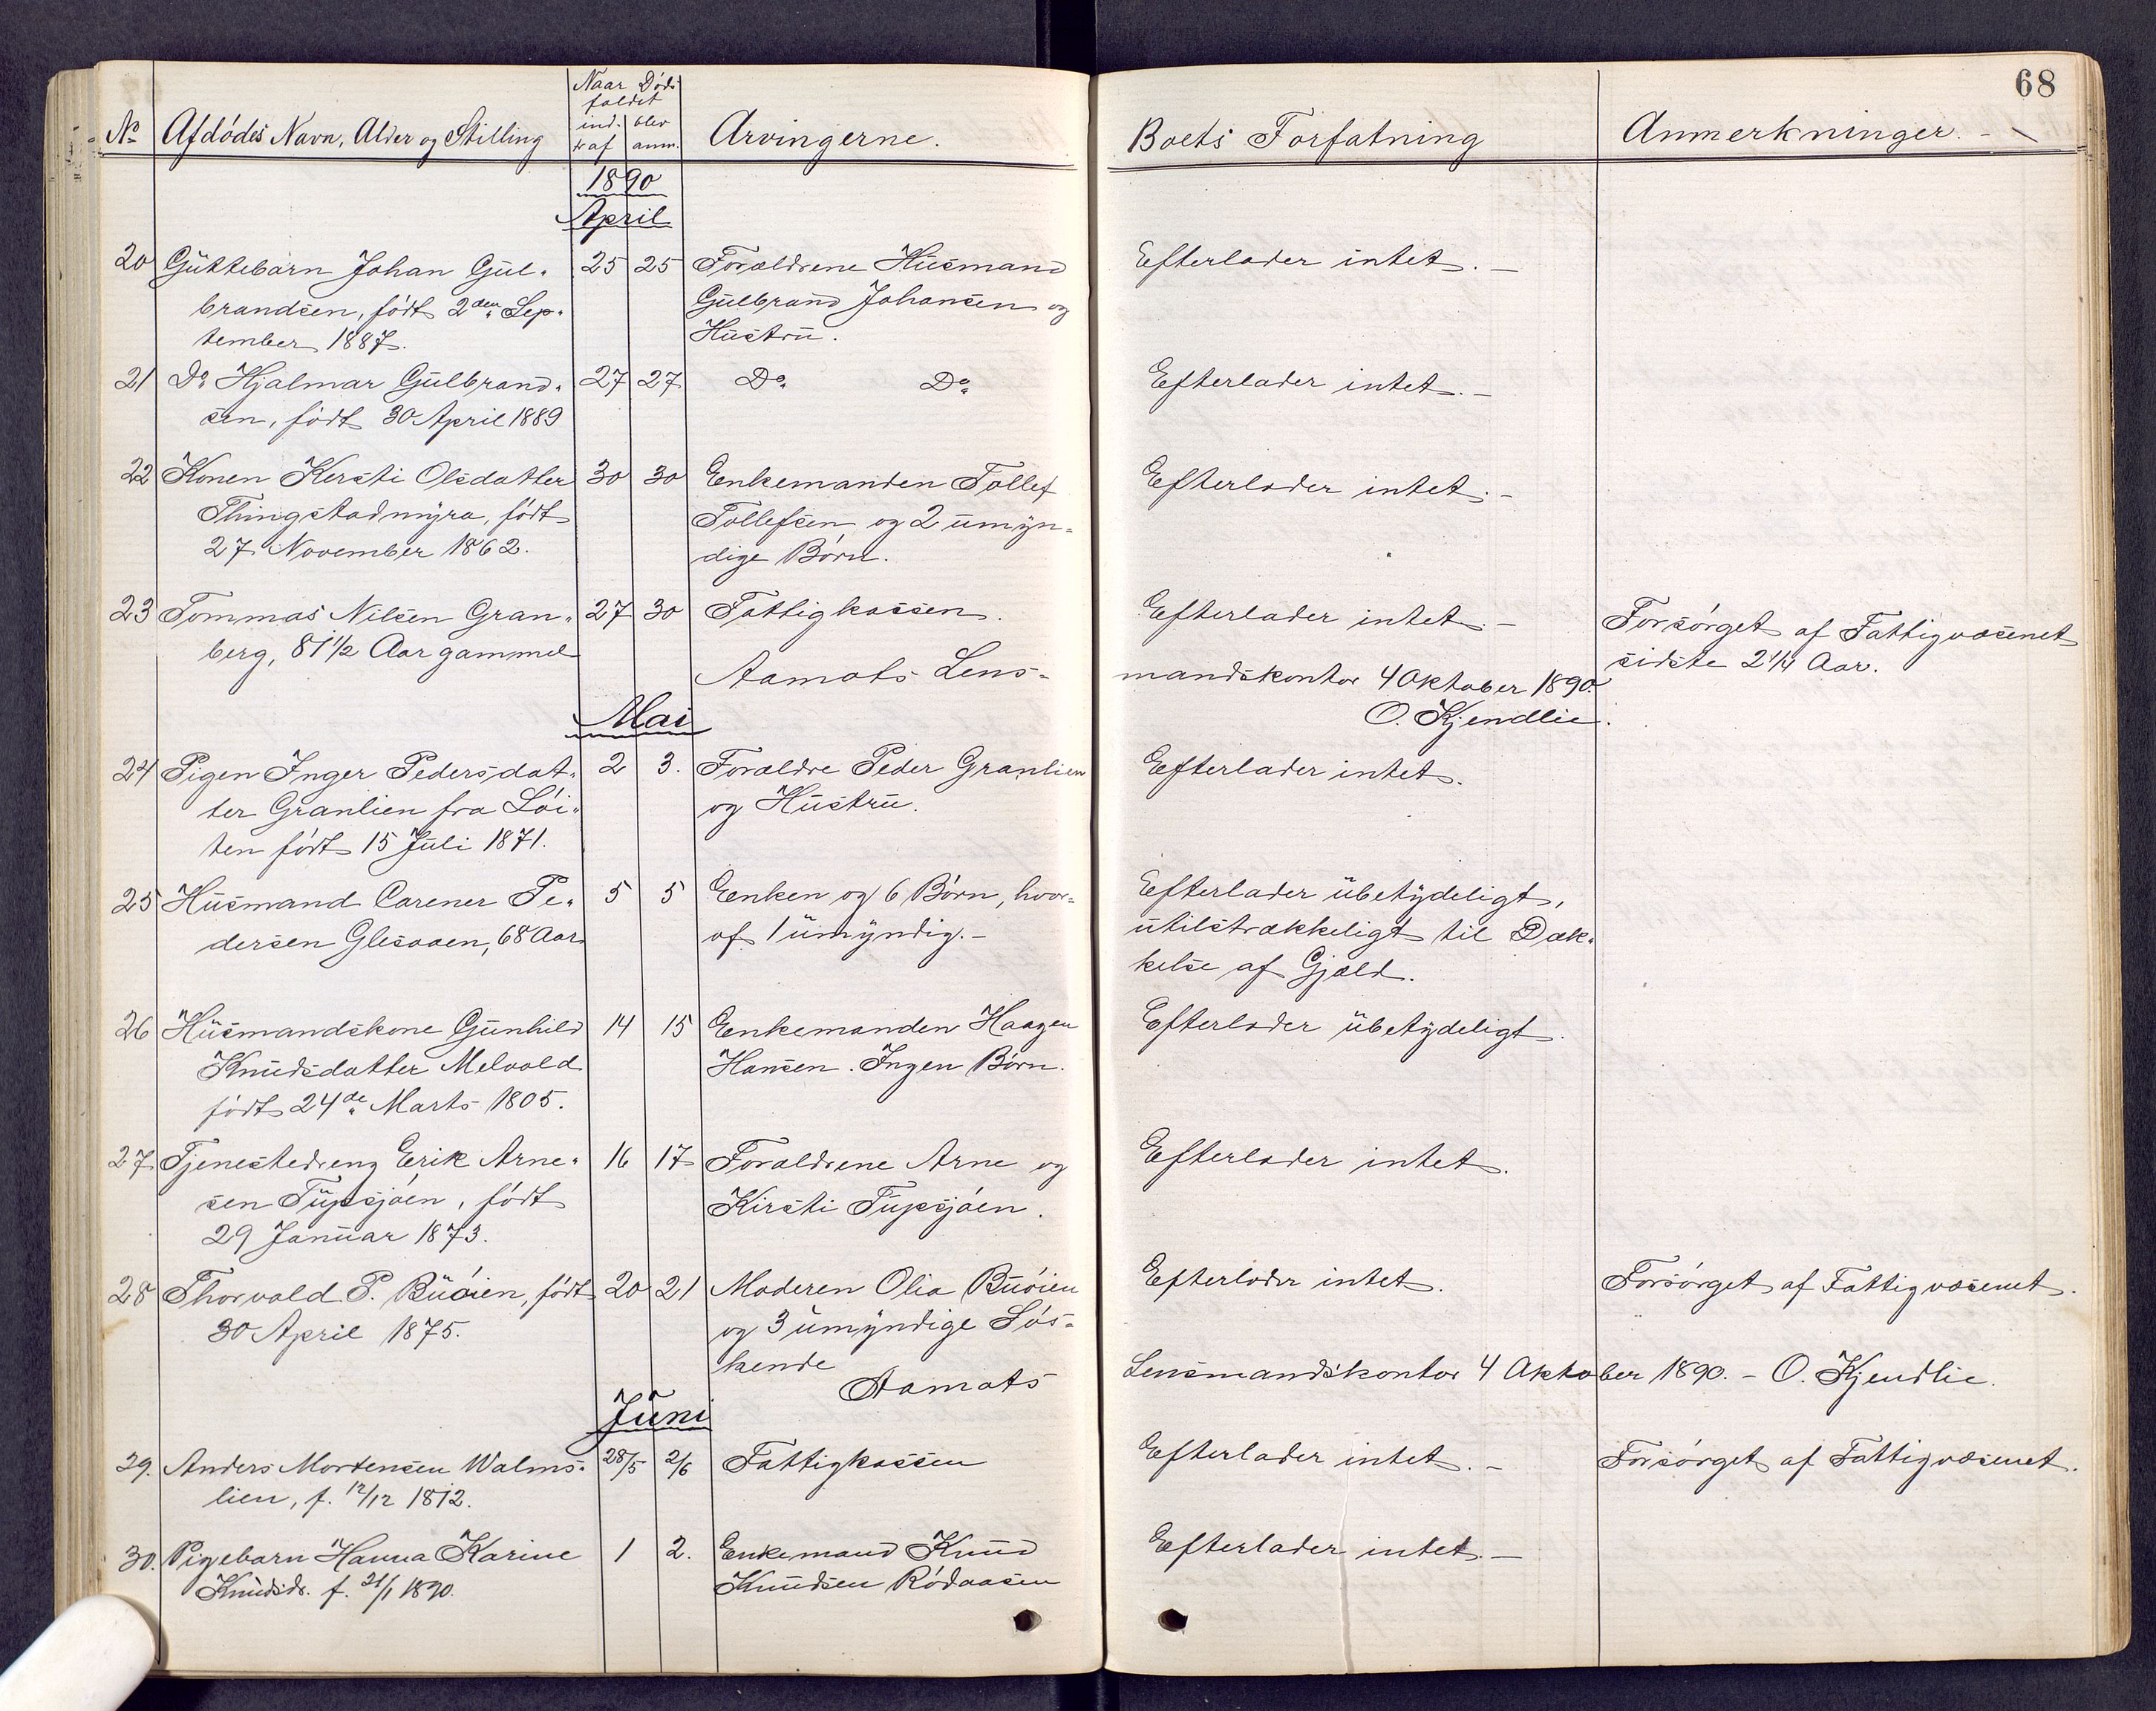 68
No Afdødes Navn, Alder og Stilling
Naar Døds-
faldet
ind- blev
traf anm.
Arvingerne.
Boets Forfatning
Anmerkninger.
1890
April
20 Guttebarn Johan Gul- 25 25 Forældrene Husmand Efterlader intet. -
brandsen, født 2den Sep- Gulbrand Johansen og
tember 1887. Hustru.
21 Do Hjalmar Gulbrand- 27 27 Do Do Efterlader intet. -
sen, født 30 April 1889
22 Konen Kersti Olsdatter 30 30 Enkemanden Tollef Efterlader intet. -
Thingstadmyra, født Tollefsen og 2 umyn-
27 November 1862. dige Børn.
23 Tommas Nilsen Gran- 27 30 Fattigkassen. Efterlader intet. - Forsørget af Fattigvæsenet
berg, 81 1/2 Aar gammel sidste 2 1/4 Aar.
Aamots Lens- mandskontor 4 Oktober 1890.
O. Kjendlie.
Mai
24 Pigen Inger Pedersdat- 2 3. Forældre Peder Granlien Efterlader intet.
ter Granlien fra Løi- og Hustru.
ten født 15 Juli 1871.
25 Husmand Carener Pe- 5 5 Enken og 6 Børn, hvor- Efterlader ubetydeligt,
dersen Glesaaen, 68 Aar af 1 umyndig. - utilstrækkeligt til Dæk-
kelse af Gjæld.
26 Husmandskone Gunhild 14 15 Enkemanden Haagen Efterlader ubetydeligt.
Knudsdatter Melvold Hansen. Ingen Børn.
født 24de Marts 1805.
27 Tjenestedreng Erik Arne- 16 17 Forældrene Arne og Efterlader intet.
sen Tupsjøen, født Kirsti Tupsjøen.
29 Januar 1873.
28 Thorvald P. Buøien, født 20 21 Moderen Olia Buøien Efterlader intet. Forsørget af Fattigvæsenet.
30 April 1875. og 3 umyndige Søs-
kende
Aamots Lensmandskontor 4 Oktober 1890. - O. Kjendlie.
Juni
29. Anders Mortensen Walms- 28/5 2/6 Fattigkassen Efterlader intet. - Forsørget af Fattigvæsenet.
lien, f. 12/12 1812.
30. Pigebarn Hanna Karine 1 2. Enkemand Knud Efterlader intet. -
Knudsdr. f. 21/1 1890. Knudsen Rødaasen